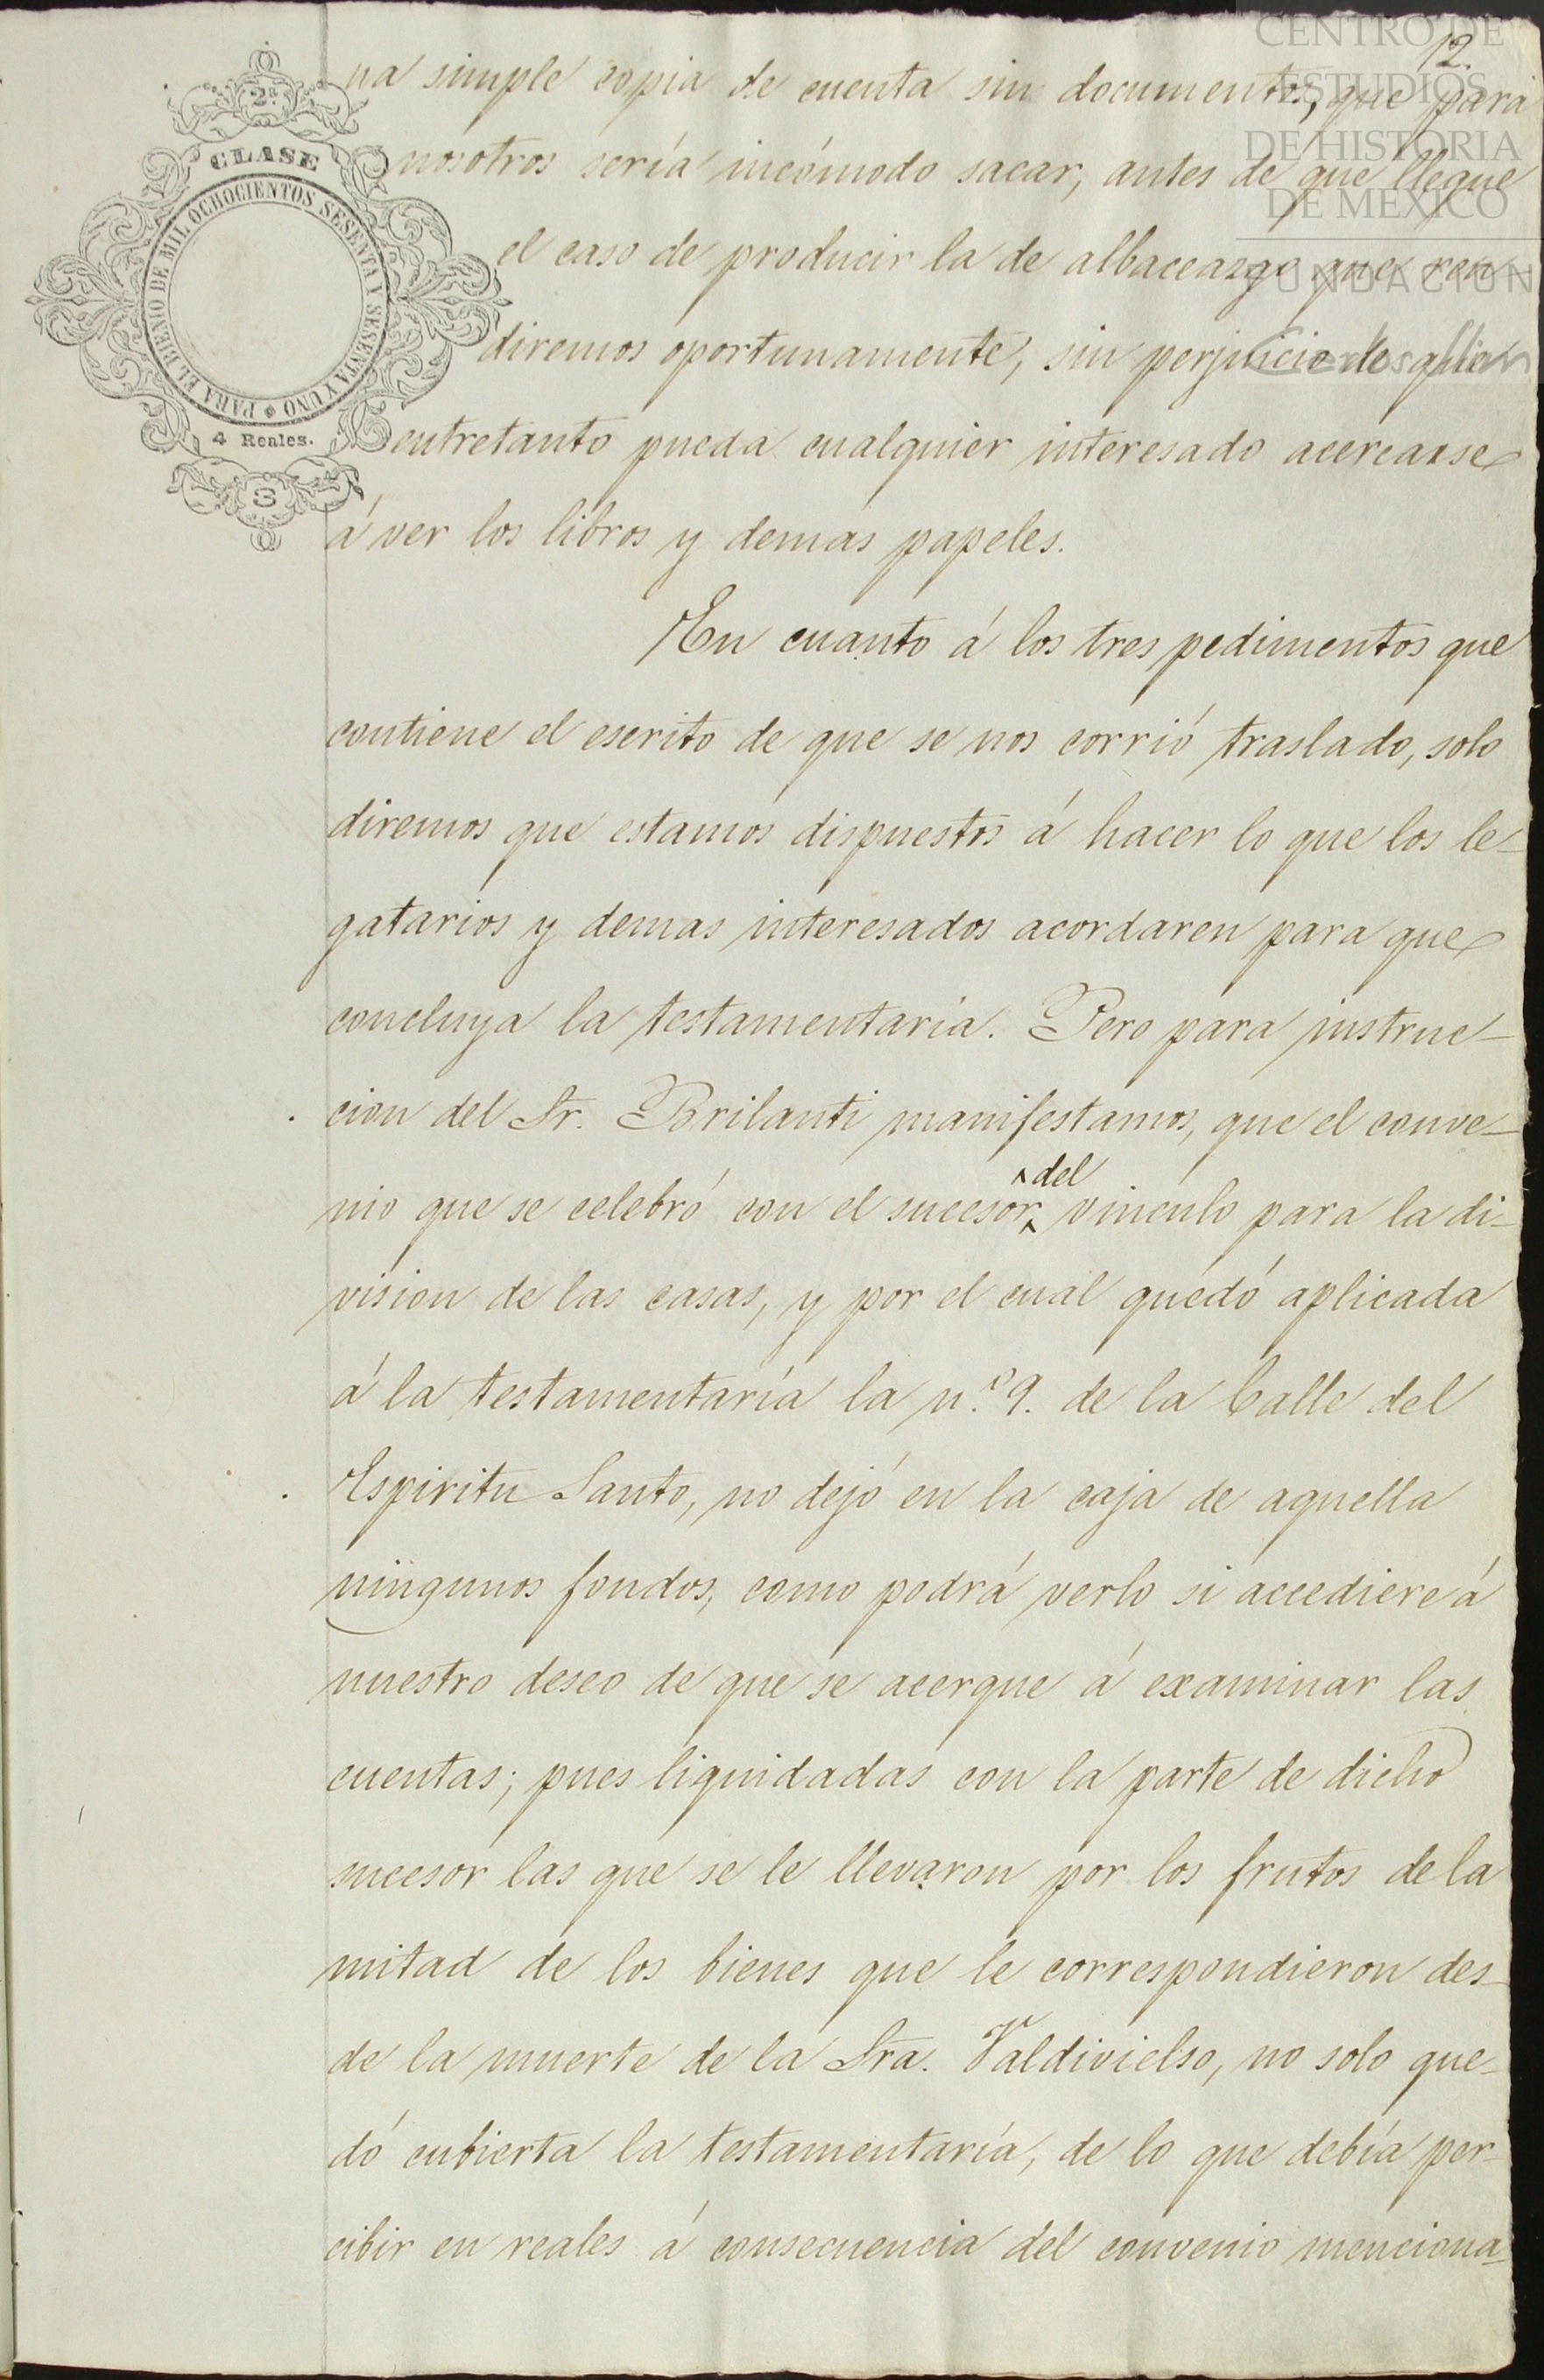 12.
CENTRO DE
ESTUDIOS
DE HISTORIA
DE MEXICO
FUNDACION
2ª
CLASE
PARA EL BIENIO DE MIL OCHOCIENTOS SESENTA Y SESENTA Y UNO
4 Reales.
3
na simple copia de cuenta sin documentos, que para
nosotros sería incómodo sacar, antes de que llegue
el caso de producir la de albaceazgo que ren
diremos oportunamente, sin perjuicio de que
entretanto pueda cualquier interesado acercarse
á ver los libros y demas papeles.
En cuanto á los tres pedimentos que
contiene el escrito de que se nos corrió traslado, solo
diremos que estamos dispuestos á hacer lo que los le-
gatarios y demas interesados acordaren para que
concluya la testamentaría. Pero para instruc-
cion del Sr. Brilanti manifestamos, que el conve-
nio que se celebró con el sucesor ^del vinculo para la di-
vision de las casas, y por el cual quedó aplicada
á la testamentaría la n.º 9. de la Calle del
Espiritu Santo, no dejó en la caja de aquella
ningunos fondos, como podrá verlo si accediere á
nuestro deseo de que se acerque á examinar las
cuentas; pues liquidadas con la parte de dicho
sucesor las que se le llevaron por los frutos de la
mitad de los bienes que le correspondieron des-
de la muerte de la Sra. Valdivielso, no solo que-
dó cubierta la testamentaría, de lo que debía per-
cibir en reales á consecuencia del convenio menciona-